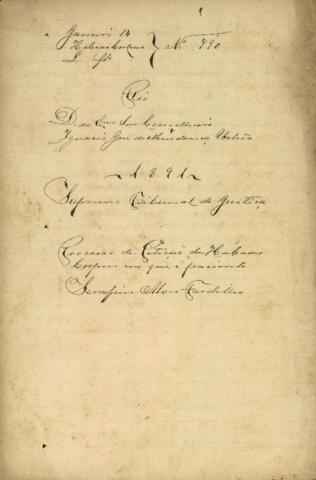 Janeiro 14
Habeas Corpus } Nº 790
Rio
D. do Exmo Snr Conselheiro
Ignacio José de Mendonça Uchôa
1891
Supremo Tribunal de Justiça
Processo de Petição de Habeas
Corpus em que é paciente
Serafim Alves